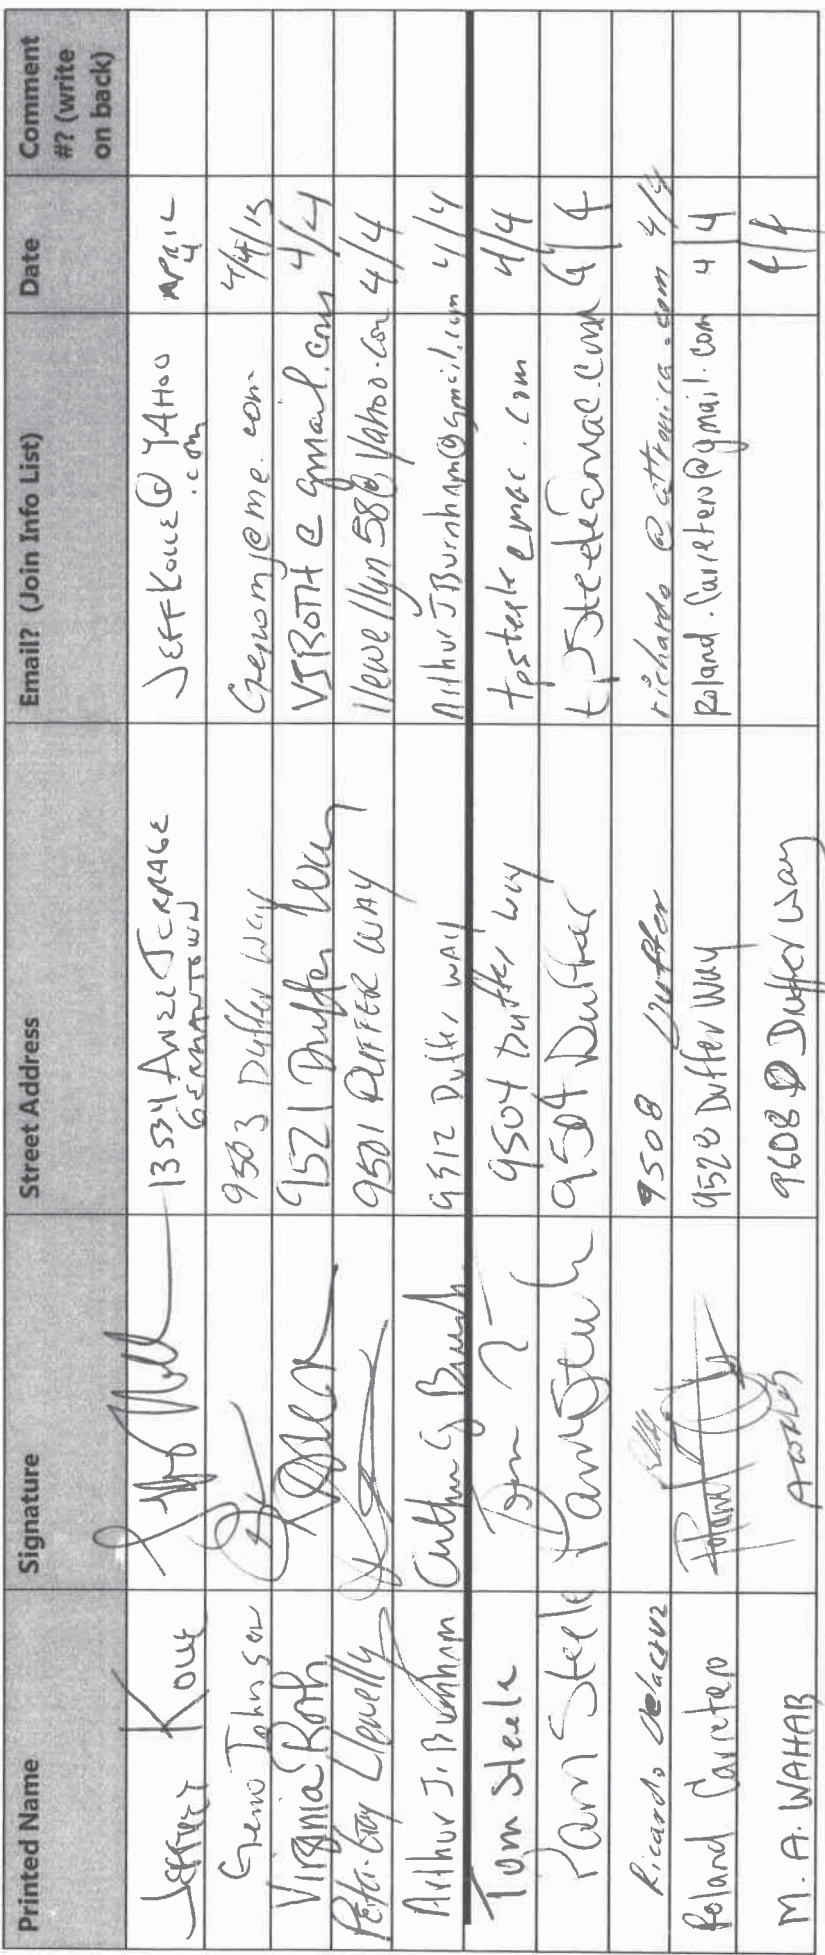 Printed Name Signature Street Address Email? (Join Info List) Date Comment #? (write on back)
Jeffrey 13534 Germantown @ YAHOO .com APRIL 4
Geno Johnson 9503 Duffer Way Genomj@me.com 4/4/15
Virginia Roth 9521 Duffer Way VJROTH@gmail.com 4/4
9501 DUFFER WAY llewellyn58@Yahoo.com 4/4
Arthur J. Burnham Arthur J Burnham 9512 Duffer WAY ArthurJBurnham@gmail.com 4/4
Tom Steele Tom 9504 Duffer Way tpsteele@mac.com 4/4
Pam Steele Pam Steele 9504 Duffer tpsteele@mac.com 4/4
Ricardo Delacruz 9508 Duffer 4/4
Roland Carretero Roland 9528 Duffer Way Roland.Carretero@gmail.com 4/4
M. A. WAHAB 9608 Duffer Way 4/4